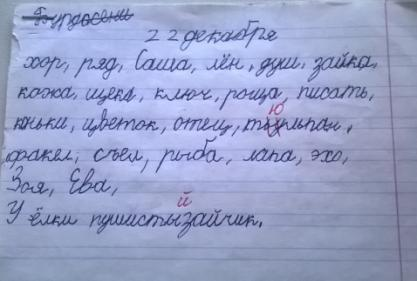 22 декабря
хор, ряд, Саша, лён, душ, зайка,
кожа, щека, ключ, роща, писать,
коньки, цветок, отец, тюльпан,
факел, съел, рыба, лапа, эхо,
Зоя, Ева,
У ёлки пушистый зайчик.